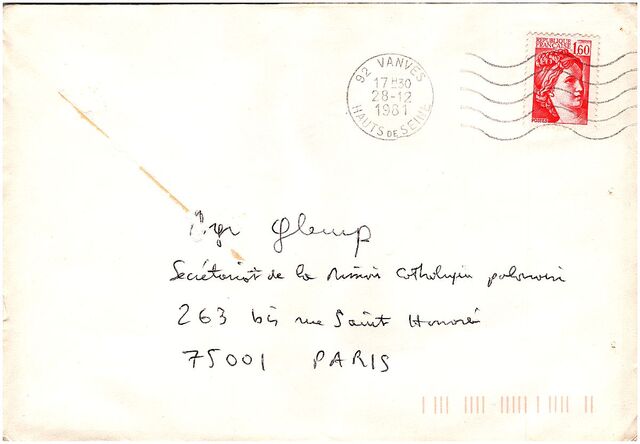 REPUBLIQUE FRANÇAISE 1,60
POSTES
92 VANVES
17H30
28-12
1981
HAUTS DE SEINE
Mgr Glemp
Secrétariat de la Mission Catholique polonaise
263 bis rue Saint Honoré
75001 PARIS